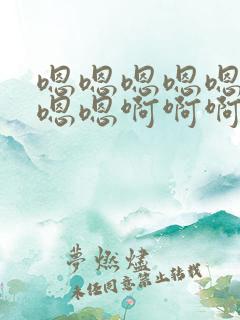 嗯嗯嗯嗯嗯
嗯嗯啊啊啊
夢燃燼
未经同意禁止转载